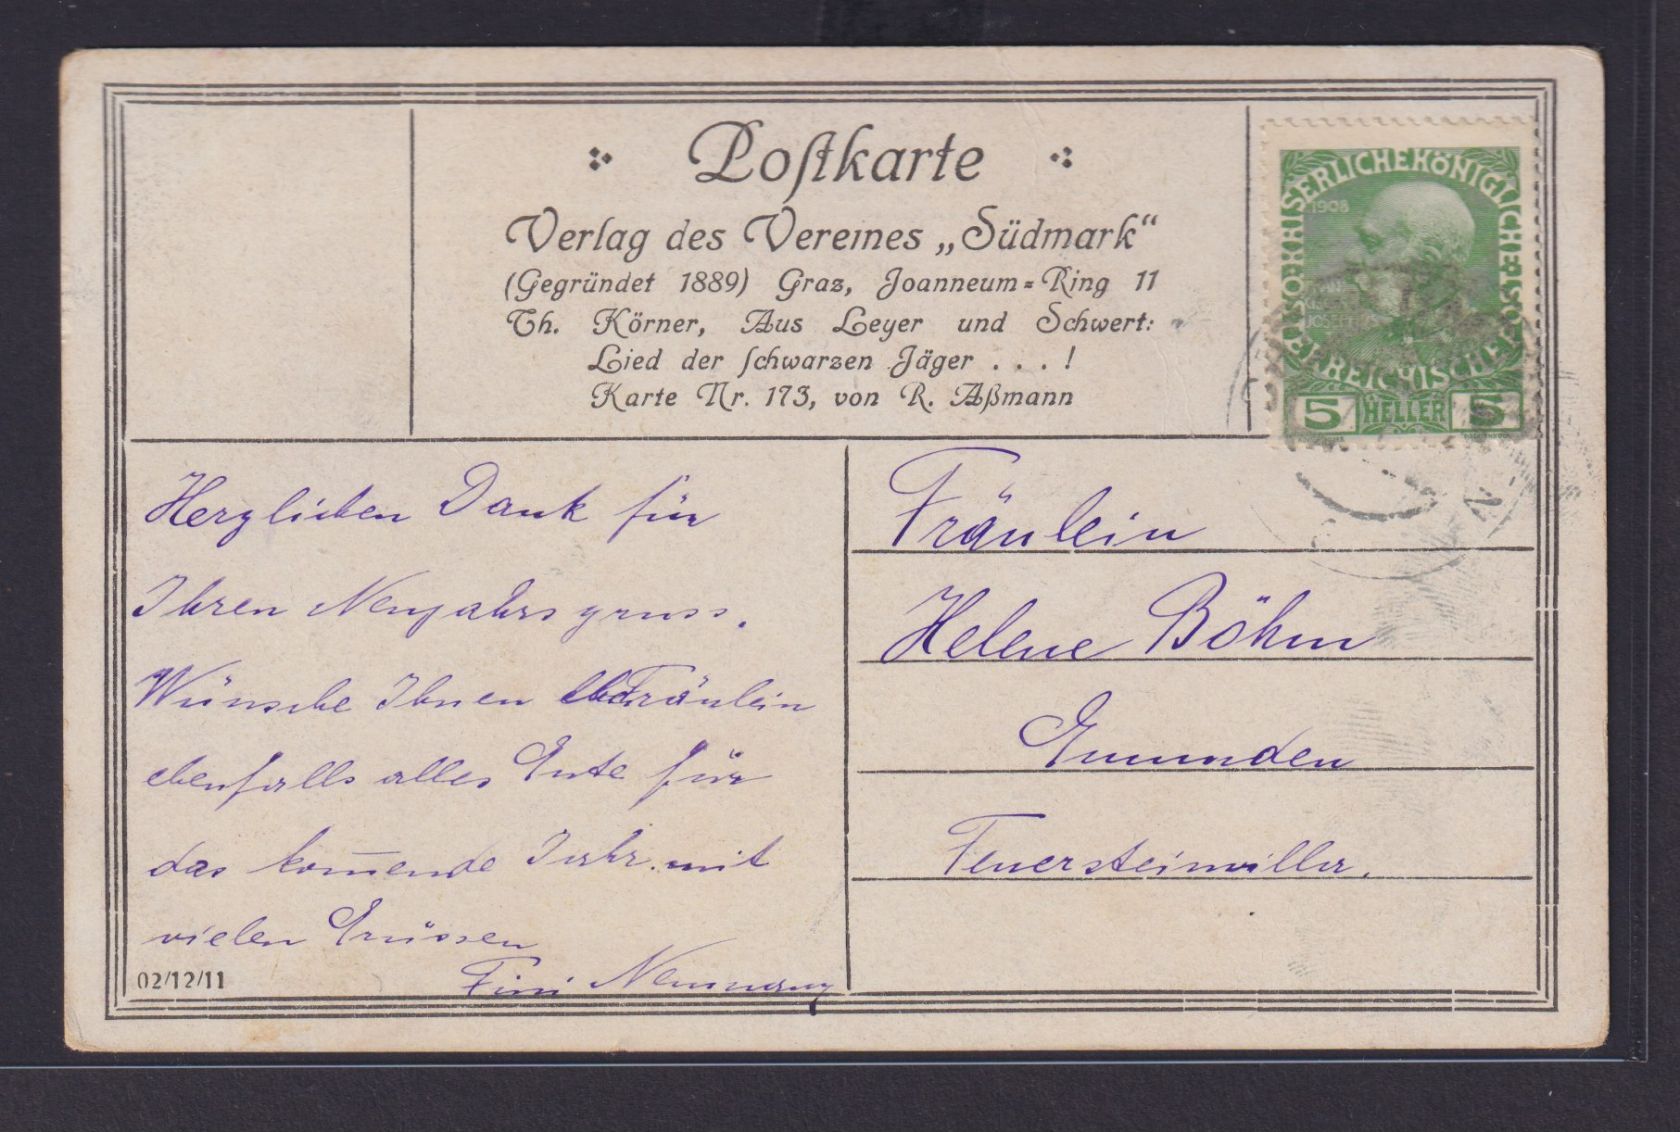 Postkarte
Verlag des Vereines „Südmark“
(Gegründet 1889) Graz, Joanneum=Ring 11
Th. Körner, Aus Leyer und Schwert:
Lied der schwarzen Jäger . . . !
Karte Nr. 173, von R. Aßmann
KAISERLICHE KÖNIGLICHE ÖSTERREICHISCHE POST
1908
5 HELLER 5
Herzlichen Dank für
Ihren Neujahrsgruss.
Wünsche Ihnen Fräulein
ebenfalls alles Gute für
das kom̅ende Jahr mit
vielen Grüssen
Fini
02/12/11
Fräulein
Helene Böhm
Gmunden